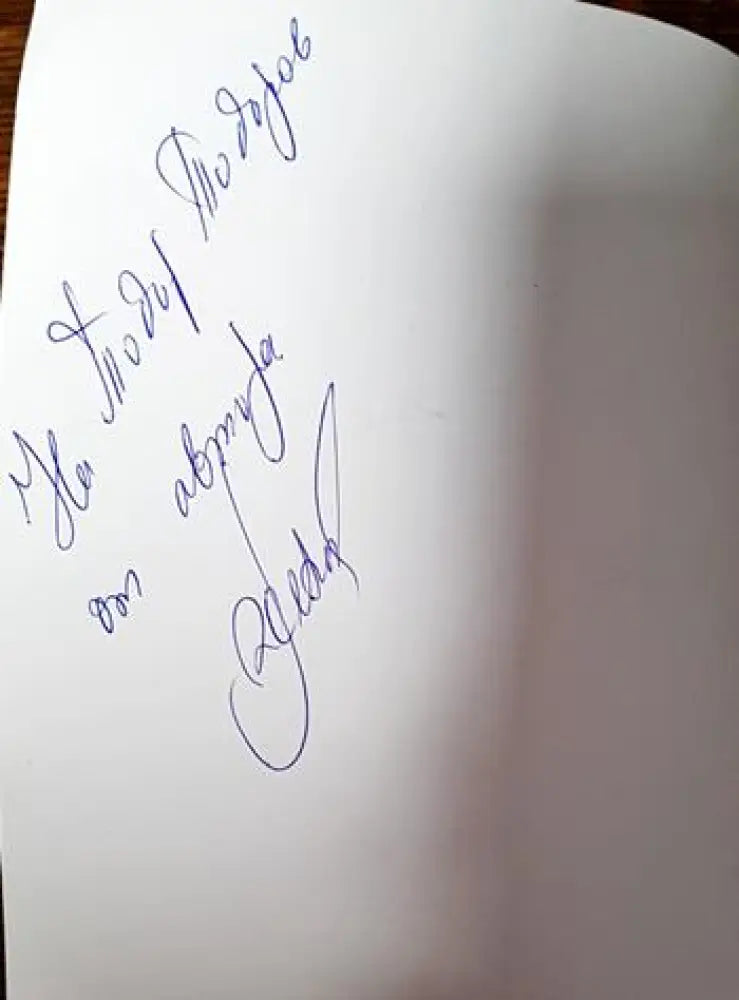 На Тодор Тодоров
от автора